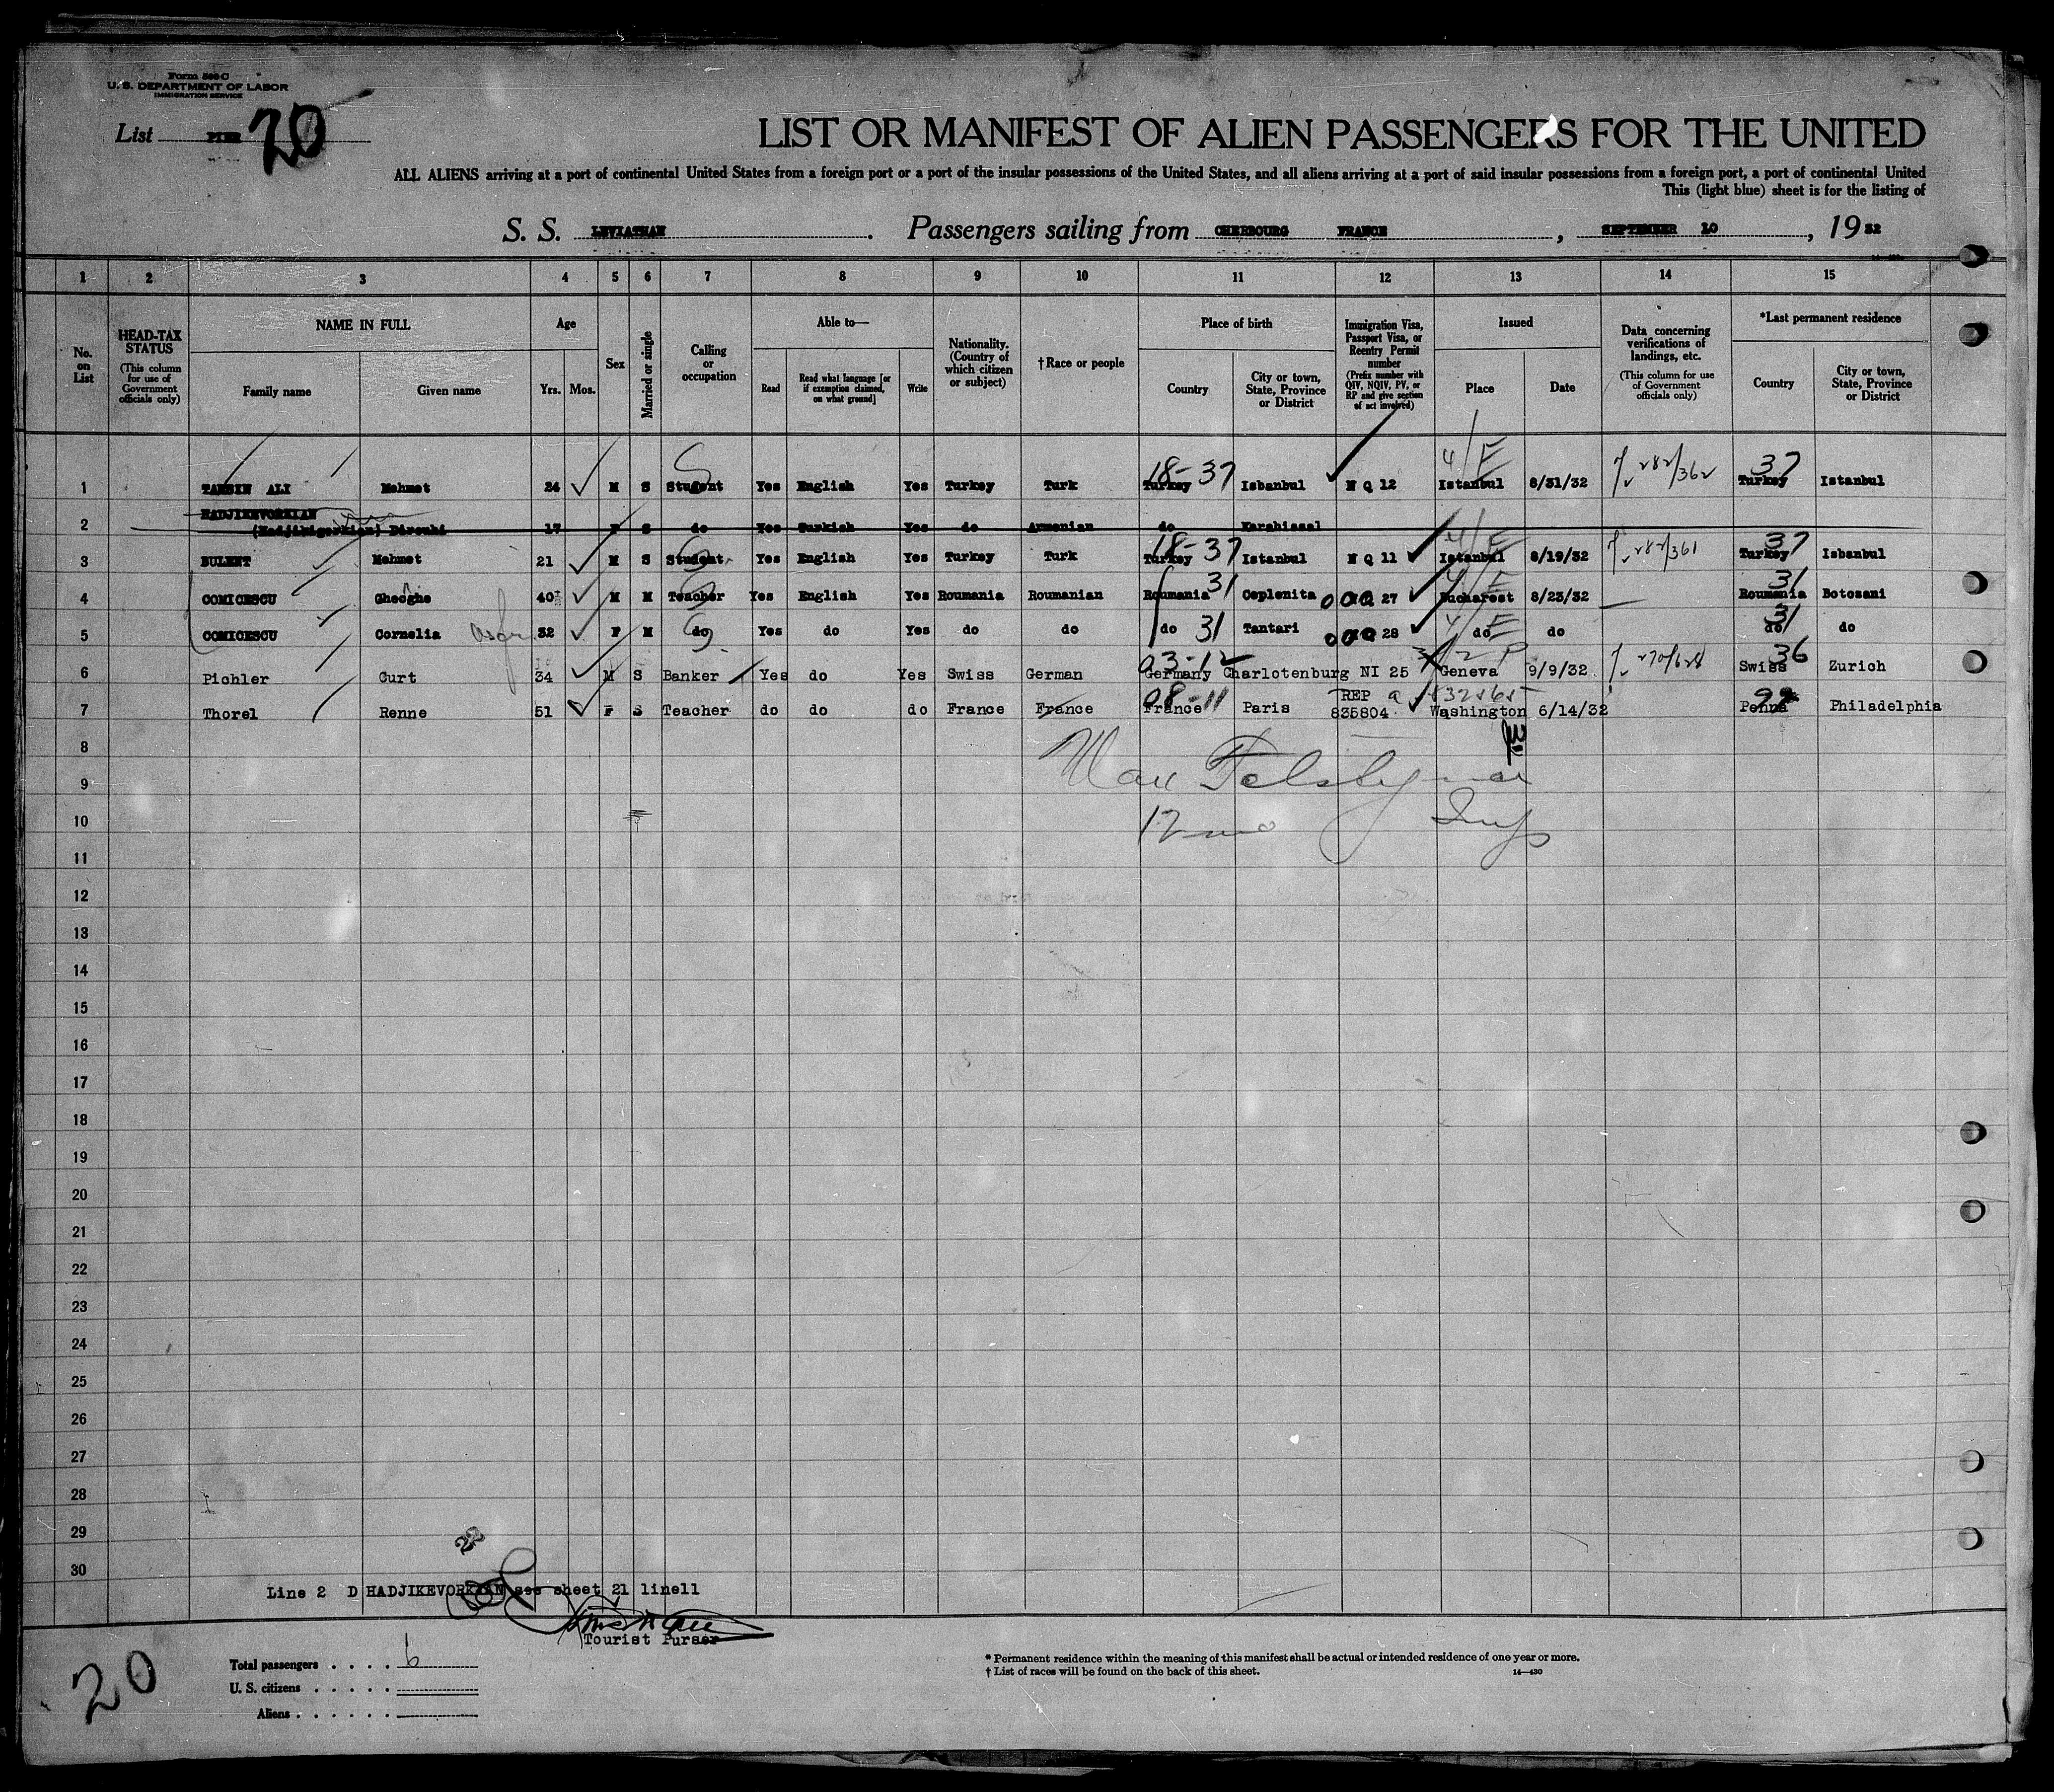 Form 500 C
U. S. DEPARTMENT OF LABOR
IMMIGRATION SERVICE
List PIER 20
LIST OR MANIFEST OF ALIEN PASSENGERS FOR THE UNITED
ALL ALIENS arriving at a port of continental United States from a foreign port or a port of the insular possessions of the United States, and all aliens arriving at a port of said insular possessions from a foreign port, a port of continental United
This (light blue) sheet is for the listing of
S. S. LEVIATHAN. Passengers sailing from CHERBOURG FRANCE, SEPTEMBER 10, 1932
1 2 3 4 5 6 7 8 9 10 11 12 13 14 15
No. on List
HEAD-TAX STATUS (This column for use of Government officials only)
NAME IN FULL
Family name Given name
Age
Yrs. Mos.
Sex
Married or single
Calling or occupation
Able to—
Read Read what language [or if exemption claimed, on what ground] Write
Nationality. (Country of which citizen or subject)
† Race or people
Place of birth
Country City or town, State, Province or District
Immigration Visa, Passport Visa, or Reentry Permit number (Prefix number with QIV, NQIV, PV, or RP and give section of act involved)
Issued
Place Date
Data concerning verifications of landings, etc. (This column for use of Government officials only)
*Last permanent residence
Country City or town, State, Province or District
18-37 4/E 282/362 37
1 TAHSIN ALI Mehmet 24 M S Student Yes English Yes Turkey Turk Turkey Isbanbul N Q 12 Istanbul 8/31/32 Turkey Istanbul
HADJIKEVORKIAN
2 (Hadjikigorkian) Dirouhi 17 F S do Yes Turkish Yes do Armenian do Karahissal
18-37 4/E 282/361 37
3 BULENT Mehmet 21 M S Student Yes English Yes Turkey Turk Turkey Istanbul N Q 11 Istanbul 8/19/32 Turkey Isbanbul
31 4/E 31
4 COMICESCU Gheoghe 40 M M Teacher Yes English Yes Roumania Roumanian Roumania Ceplenita N Q 27 Bucharest 8/23/32 Roumania Botosani
31 4/E 31
5 COMICESCU Cornelia 32 F M do Yes do Yes do do do Tantari N Q 28 do do do do
03-12 270/628 36
6 Pichler Curt 34 M S Banker Yes do Yes Swiss German Germany Charlotenburg NI 25 Geneva 9/9/32 Swiss Zurich
08-11 REP 832565 99
7 Thorel Renne 51 F S Teacher do do do France France France Paris 835804 Washington 6/14/32 Penna Philadelphia
8
9
10
12 mo Insp
11
12
13
14
15
16
17
18
19
20
21
22
23
24
25
26
27
28
29
30
Line 2 D HADJIKEVORKIAN see sheet 21 line11
Tourist Purser
20
Total passengers . . . . 6
U. S. citizens . . . . .
Aliens . . . . . .
* Permanent residence within the meaning of this manifest shall be actual or intended residence of one year or more.
† List of races will be found on the back of this sheet. 14—430